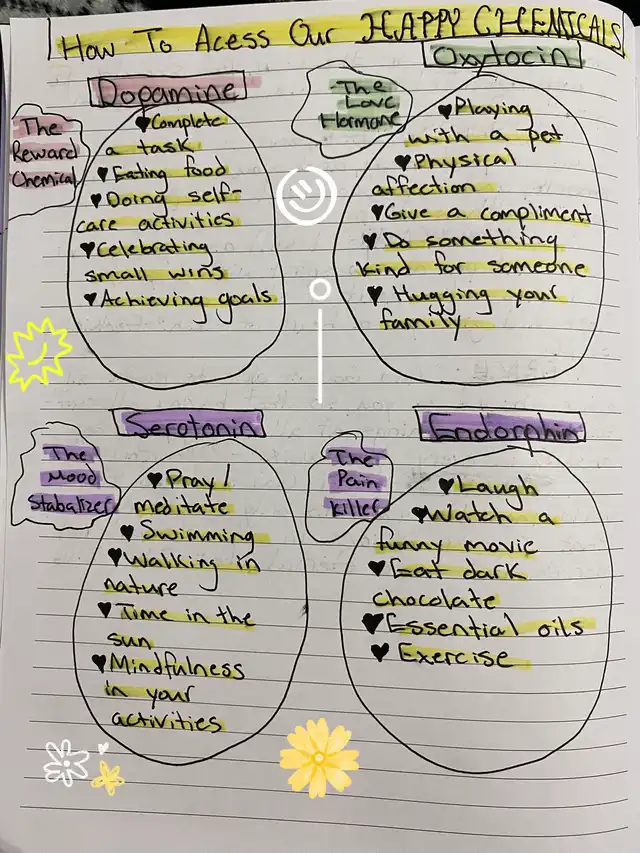 How To Acess Our HAPPY CHEMICALS
Dopamine
The
Reward
Chemical
♥Complete
a task
♥Eating food
♥Doing self-
care activities
♥Celebrating
small wins
♥Achieving goals
Oxytocin
The
Love
Hormone
♥Playing
with a pet
♥Physical
affection
♥Give a compliment
♥Do something
kind for someone
♥Hugging your
family
Serotonin
The
Mood
Stabalizer
♥Pray/
meditate
♥Swimming
♥Walking in
nature
♥Time in the
sun
♥Mindfulness
in your
activities
Endorphin
The
Pain
Killer
♥Laugh
♥Watch a
funny movie
♥Eat dark
chocolate
♥Essential oils
♥Exercise